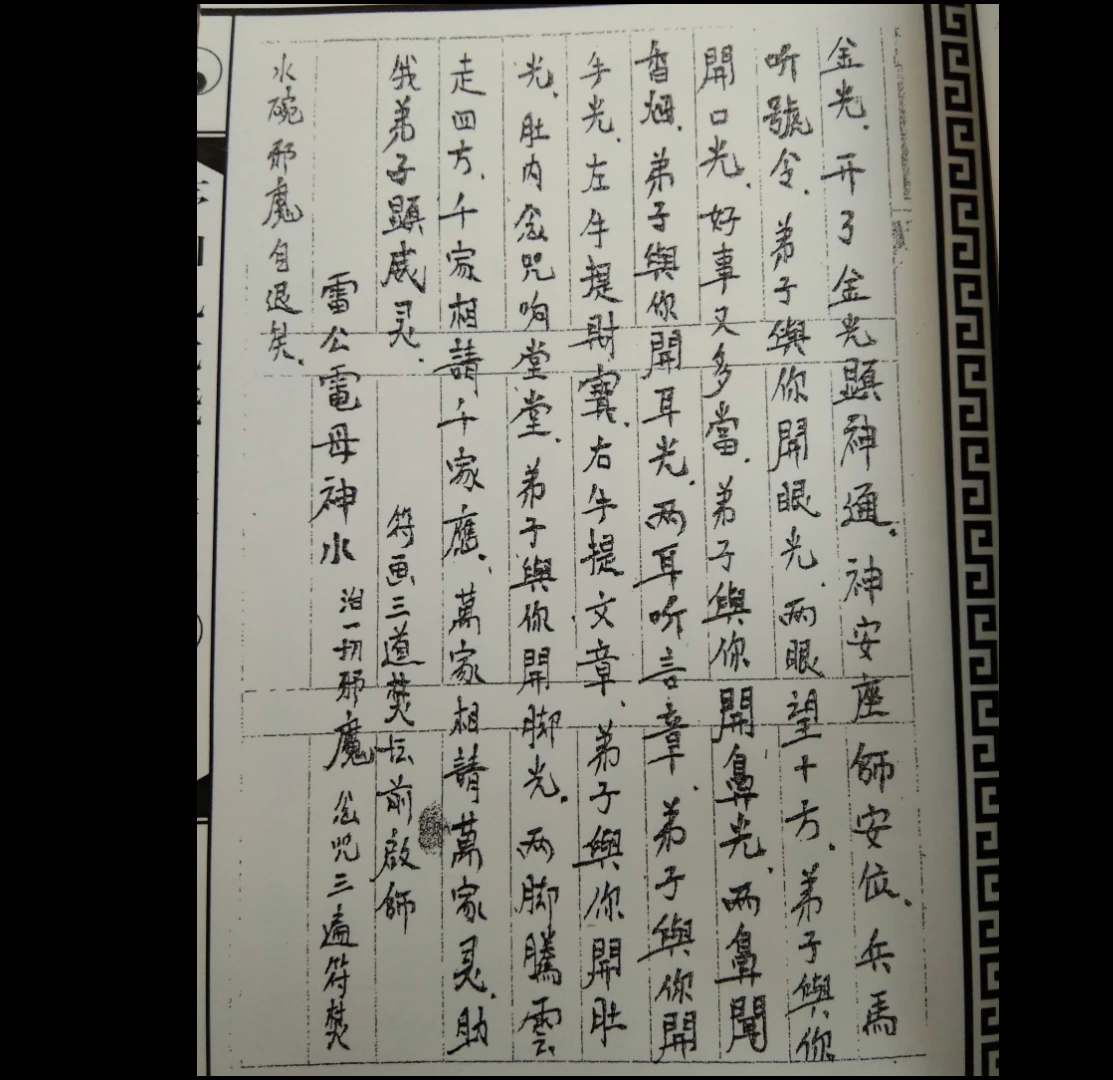 金光、开了金光顕神通。神安座師安位、兵馬
听號令、弟子與你開眼光、两眼望十方、弟子與你
開口光、好事又多當、弟子與你開鼻光、两鼻聞
香烟、弟子與你開耳光、两耳听言章、弟子與你開
手光、左手提財寶、右手提文章、弟子與你開肚
光、肚内念咒响堂堂、弟子與你開脚光、两脚騰雲
走四方、千家相請千家應、萬家相請萬家灵、助
我弟子顕威灵、 符画三道焚坛前啟師
雷公電母神水 治一切邪魔 念咒三遍符焚
水碗邪魔自退矣、